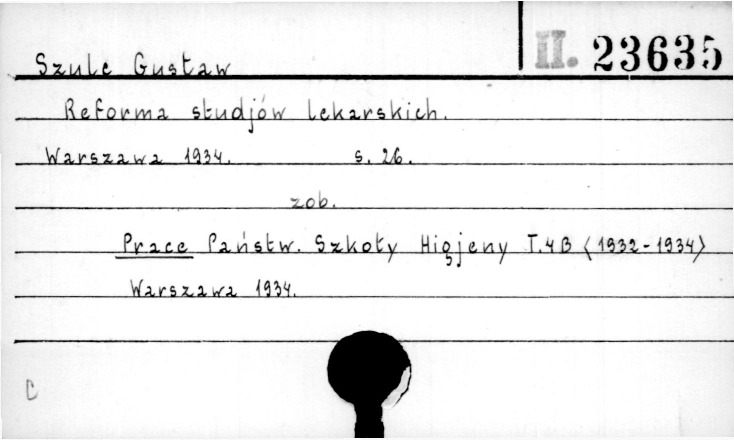 II. 23635
Szulc Gustaw
Reforma studjów lekarskich.
Warszawa 1934. s. 26.
zob.
Prace Państw. Szkoły Higjeny T.4B (1932-1934)
Warszawa 1934.
C